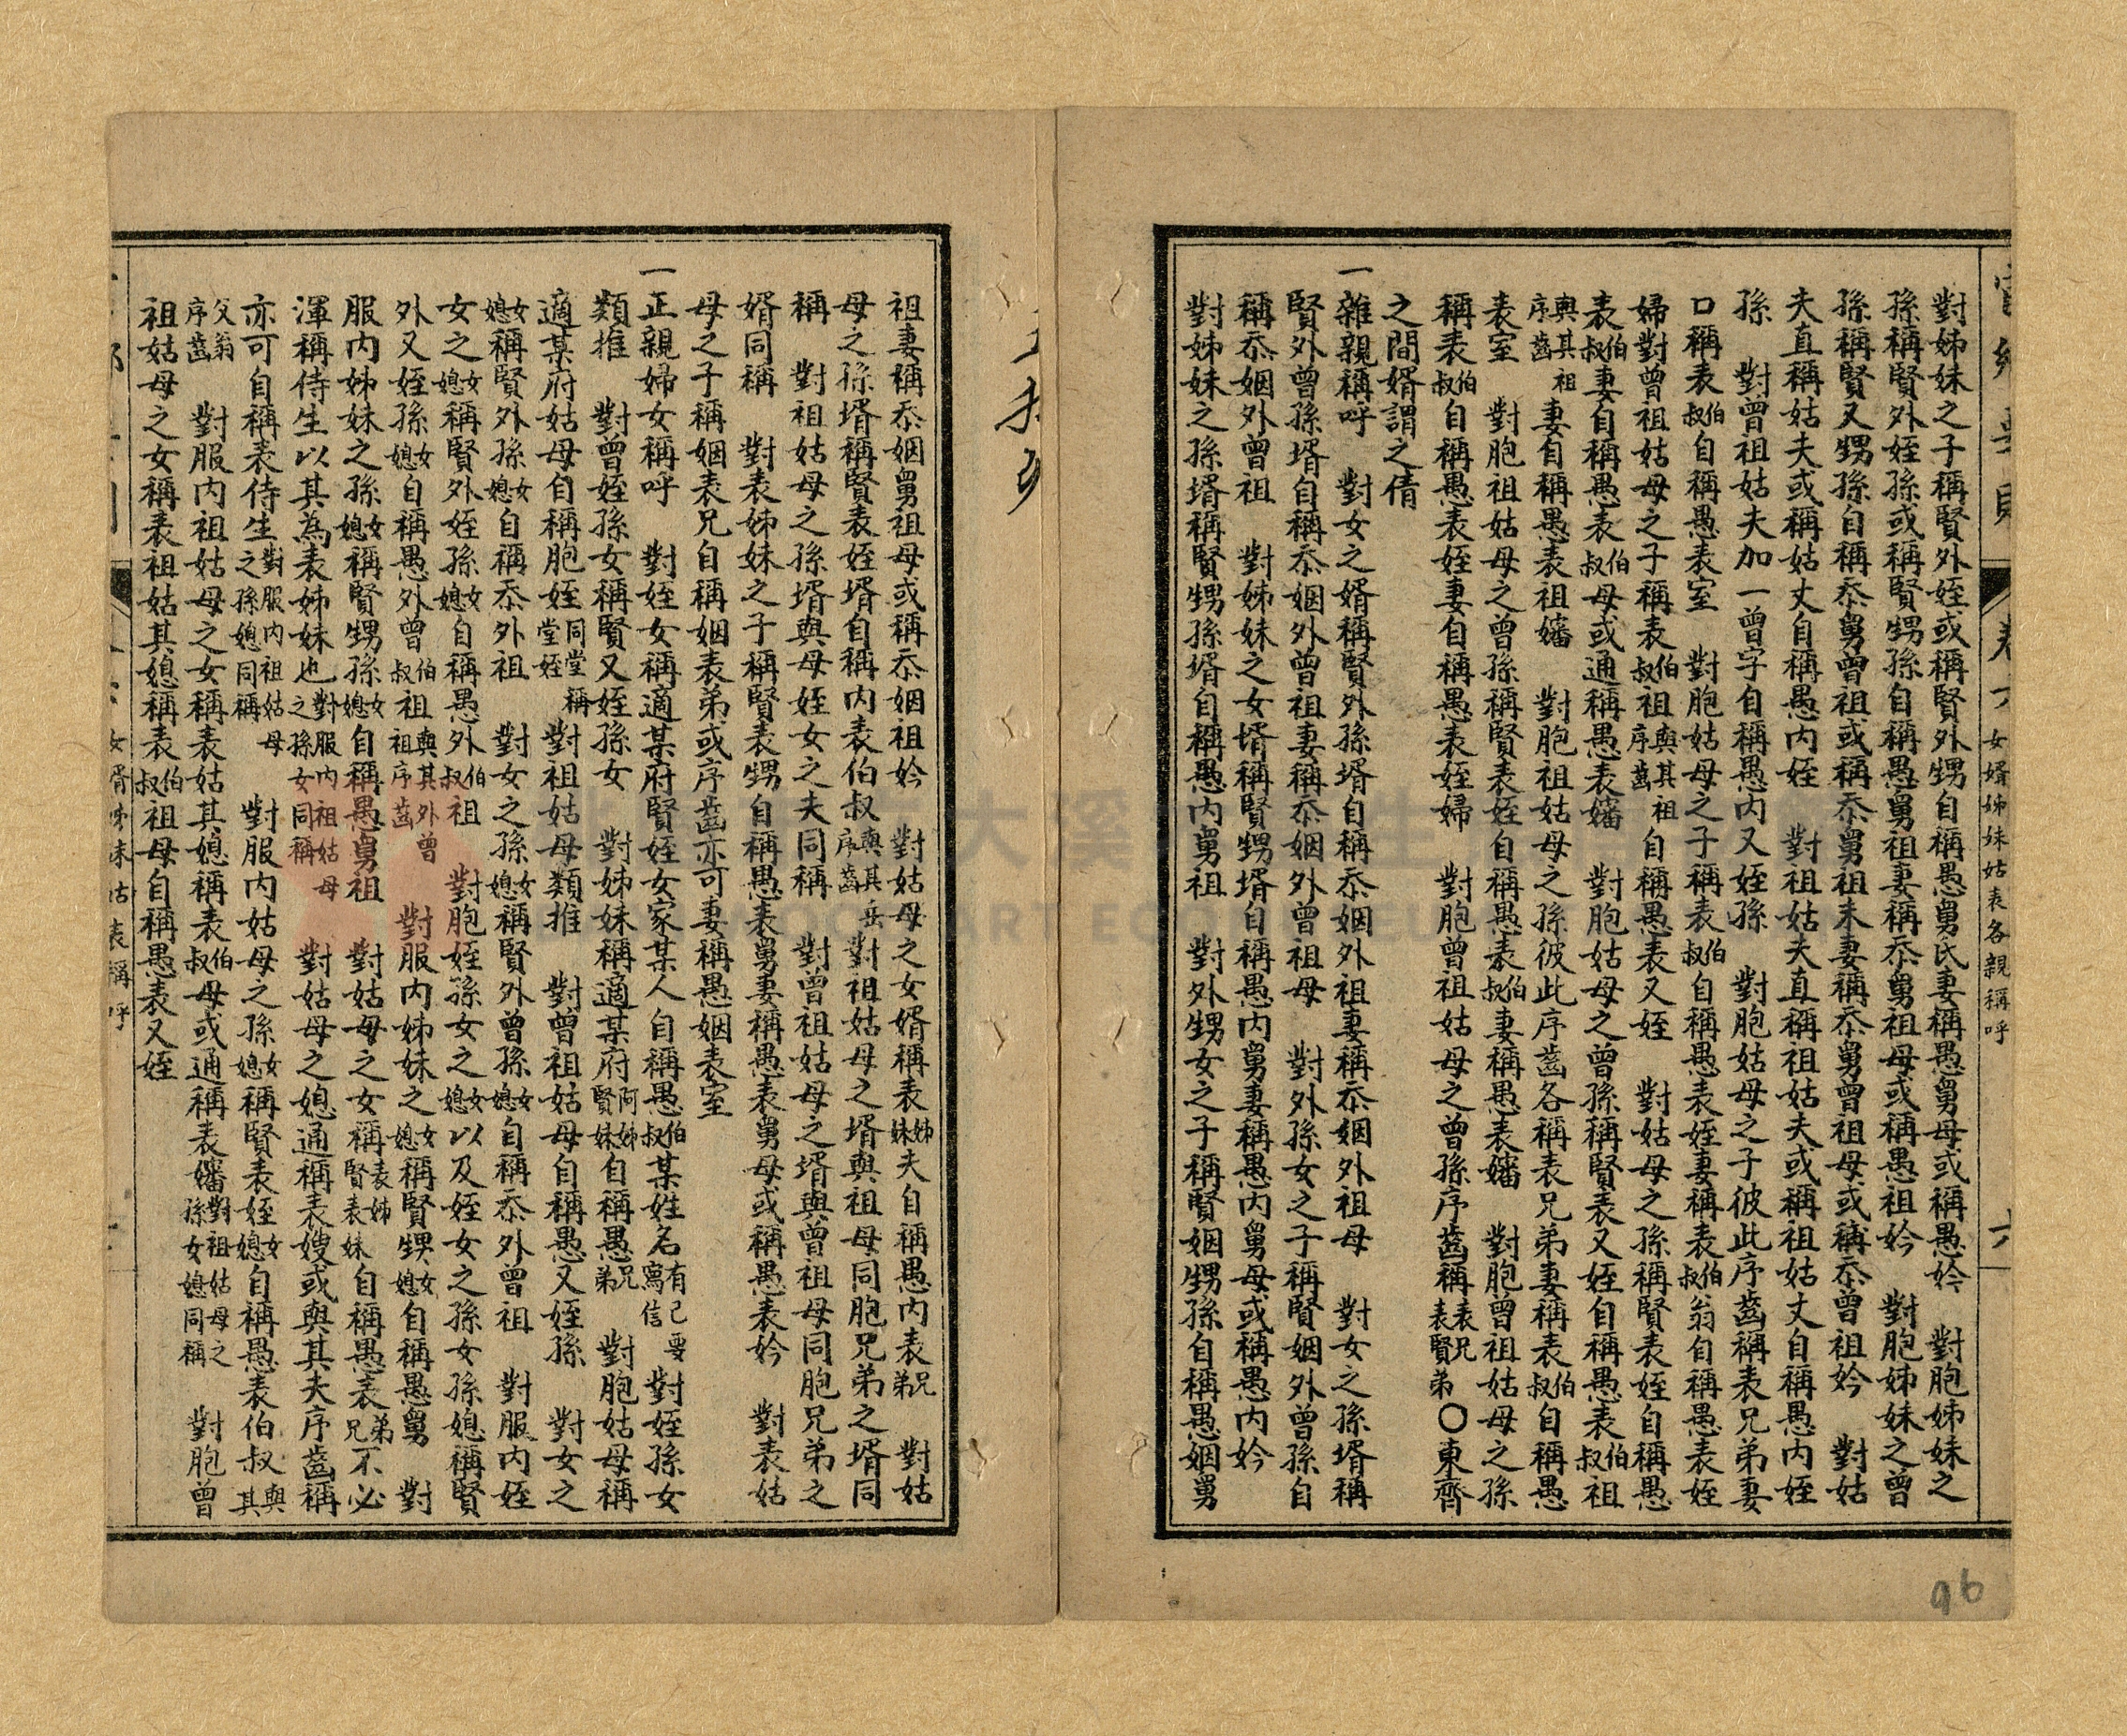 對姊妹之子稱賢外姪或稱賢外甥自稱愚舅氏妻稱愚舅母或稱愚妗　對胞姊妹之
孫稱賢外姪孫或稱賢甥孫自稱愚舅祖妻稱忝舅祖母或稱愚祖妗　對胞姊妹之曾
孫稱賢又甥孫自稱忝舅曾祖或稱忝舅祖末妻稱忝舅曾祖母或稱忝曾祖妗　對姑
夫直稱姑夫或稱姑丈自稱愚內姪　對祖姑夫直稱祖姑夫或稱祖姑丈自稱愚內姪
孫　對曾祖姑夫加一曾字自稱愚內又姪孫　對胞姑母之子彼此序齒稱表兄弟妻
口稱表伯叔自稱愚表室　對胞姑母之子稱表伯叔自稱愚表姪妻稱表伯叔翁自稱愚表姪
婦對曾祖姑母之子稱表伯叔祖與其祖序齒自稱愚表又姪　對姑母之孫稱賢表姪自稱愚
表伯叔妻自稱愚表伯叔母或通稱愚表嬸　對胞姑母之曾孫稱賢表又姪自稱愚表伯叔祖
與其祖序齒妻自稱愚表祖嬸　對胞祖姑母之孫彼此序齒各稱表兄弟妻稱表伯叔自稱愚
表室　對胞祖姑母之曾孫稱賢表姪自稱愚表伯叔妻稱愚表嬸　對胞曾祖姑母之孫
稱表伯叔自稱愚表姪妻自稱愚表姪婦　對胞曾祖姑母之曾孫序齒稱表兄表賢弟〇東齊
之間婿謂之倩
一雜親稱呼　對女之婿稱賢外孫壻自稱忝姻外祖妻稱忝姻外祖母　對女之孫壻稱
賢外曾孫壻自稱忝姻外曾祖妻稱忝姻外曾祖母　對外孫女之子稱賢姻外曾孫自
稱忝姻外曾祖　對姊妹之女壻稱賢甥壻自稱愚內舅妻稱愚內舅母或稱愚內妗
對姊妹之孫壻稱賢甥孫壻自稱愚內舅祖　對外甥女之子稱賢姻甥孫自稱愚姻舅
女婿姊妹姑表各親稱呼
六
96
祖妻稱忝姻舅祖母或稱忝姻祖妗　對姑母之女婿稱表姊妹夫自稱愚內表兄弟　對姑
母之孫壻稱賢表姪壻自稱內表伯叔與其岳序齒對祖姑母之壻與祖母同胞兄弟之壻同
稱　對祖姑母之孫壻與母姪女之夫同稱　對曾祖姑母之壻與曾祖母同胞兄弟之
婿同稱　對表姊妹之子稱賢表甥自稱愚表舅妻稱愚表舅母或稱愚表妗　對表姑
母之子稱姻表兄自稱姻表弟或序齒亦可妻稱愚姻表室
一正親婦女稱呼　對姪女稱適某府賢姪女家某人自稱愚伯叔某姓名有己要寫信對姪孫女
類推　對曾姪孫女稱賢又姪孫女　對姊妹稱適某府阿姊賢妹自稱愚兄弟　對胞姑母稱
適某府姑母自稱胞姪同堂稱堂姪對祖姑母類推　對曾祖姑母自稱愚又姪孫　對女之
女媳稱賢外孫女媳自稱忝外祖　對女之孫女媳稱賢外曾孫女媳自稱忝外曾祖　對服內姪
女之女媳稱賢外姪孫女媳自稱愚外伯叔祖　對胞姪孫女之女媳以及姪女之孫女孫媳稱賢
外又姪孫女媳自稱愚外曾伯叔祖與其外曾祖序齒　對服內姊妹之女媳稱賢甥女媳自稱愚舅　對
服內姊妹之孫女媳稱賢甥孫女媳自稱愚舅祖　對姑母之女稱表姊賢表妹自稱愚表弟兄不必
渾稱侍生以其為表姊妹也對服內祖姑母之孫女同稱　對姑母之媳通稱表嫂或與其夫序齒稱
亦可自稱表侍生對服內祖姑母之孫媳同稱　對服內姑母之孫女媳稱賢表姪女媳自稱愚表伯叔與其
父翁序齒　對服內祖姑母之女稱表姑其媳稱表伯叔母或通稱表嬸對祖姑母之孫女媳同稱　對胞曾
祖姑母之女稱表祖姑其媳稱表伯叔祖母自稱愚表又姪
女婿姊妹姑表稱呼